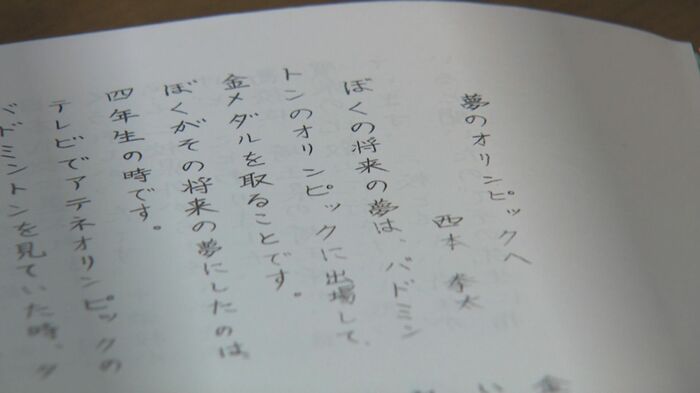 夢のオリンピックへ
西本 拳太
ぼくの将来の夢は、バドミン
トンのオリンピックに出場して、
金メダルを取ることです。
ぼくがその将来の夢にしたのは、
四年生の時です。
テレビでアテネオリンピックの
バドミントンを見ていた時、タ